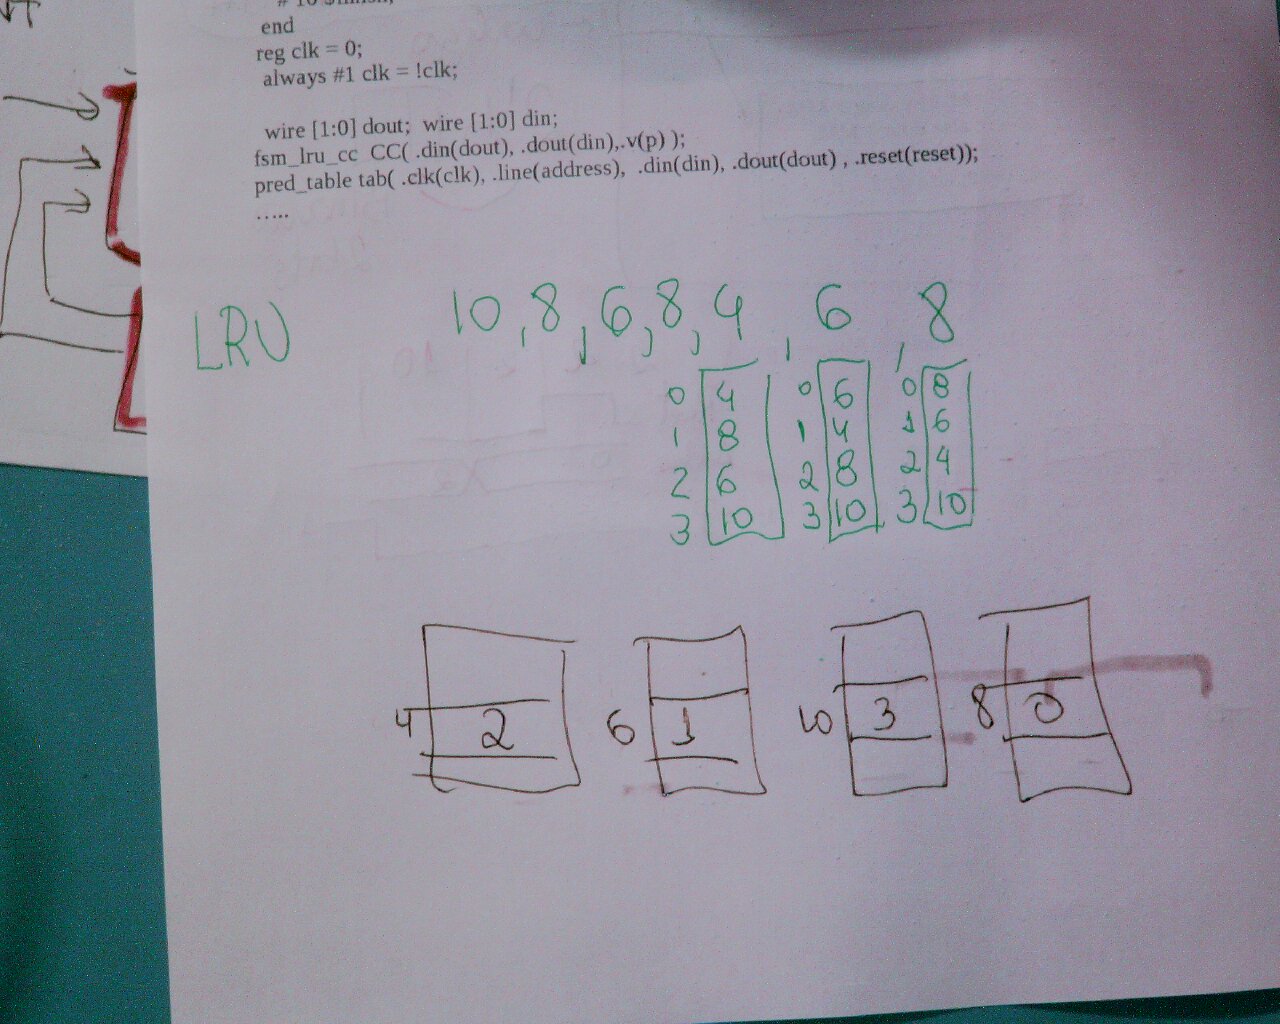 end
reg clk = 0;
always #1 clk = !clk;
wire [1:0] dout; wire [1:0] din;
fsm_lru_cc CC( .din(dout), .dout(din),.v(p) );
pred_table tab( .clk(clk), .line(address), .din(din), .dout(dout) , .reset(reset));
.....
LRU 10, 8, 6, 8, 4, 6, 8
0 4 0 6 0 8
1 8 1 4 1 6
2 6 2 8 2 4
3 10 3 10 3 10
4 2 6 1 10 3 8 0